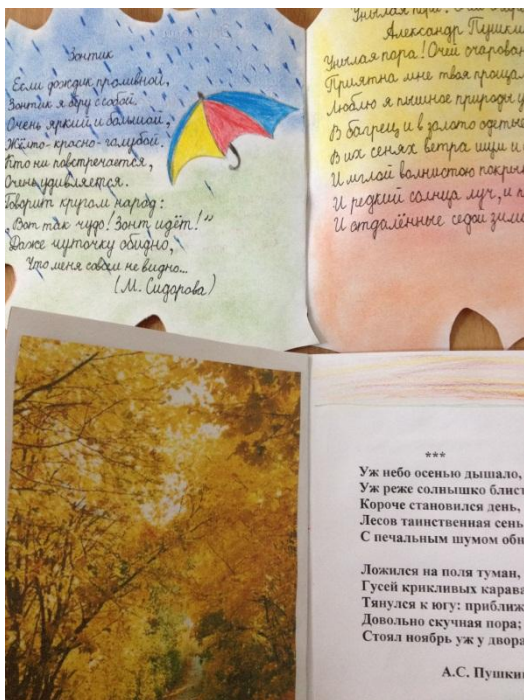 Зонтик
Если дождик проливной,
Зонтик я беру с собой.
Очень яркий и большой,
Жёлто-красно-голубой.
Кто ни повстречается,
Очень удивляется.
Говорит кругом народ:
„Вот так чудо! Зонт идёт!"
Даже чуточку обидно,
Что меня совсем не видно...
(М. Сидорова)
Александр Пушки
Унылая пора! Очей очарован
Приятна мне твоя проща
Люблю я пышное природы у
В багрец и в золото одетые
В их сенях ветра шум и
И мглой волнистою покры
И редкий солнца луч, и п
И отдалённые седой зим
***
Уж небо осенью дышало,
Уж реже солнышко блист
Короче становился день,
Лесов таинственная сень
С печальным шумом обн
Ложился на поля туман,
Гусей крикливых карава
Тянулся к югу: приближ
Довольно скучная пора;
Стоял ноябрь уж у двора
А.С. Пушки